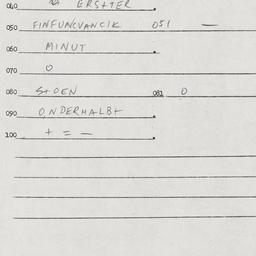 040 ERSTER
050 FINFUNCVANCIK 051 —
060 MINUT
070 O
080 STOEN 081 O
090 ONDERHALBT
100 + = —